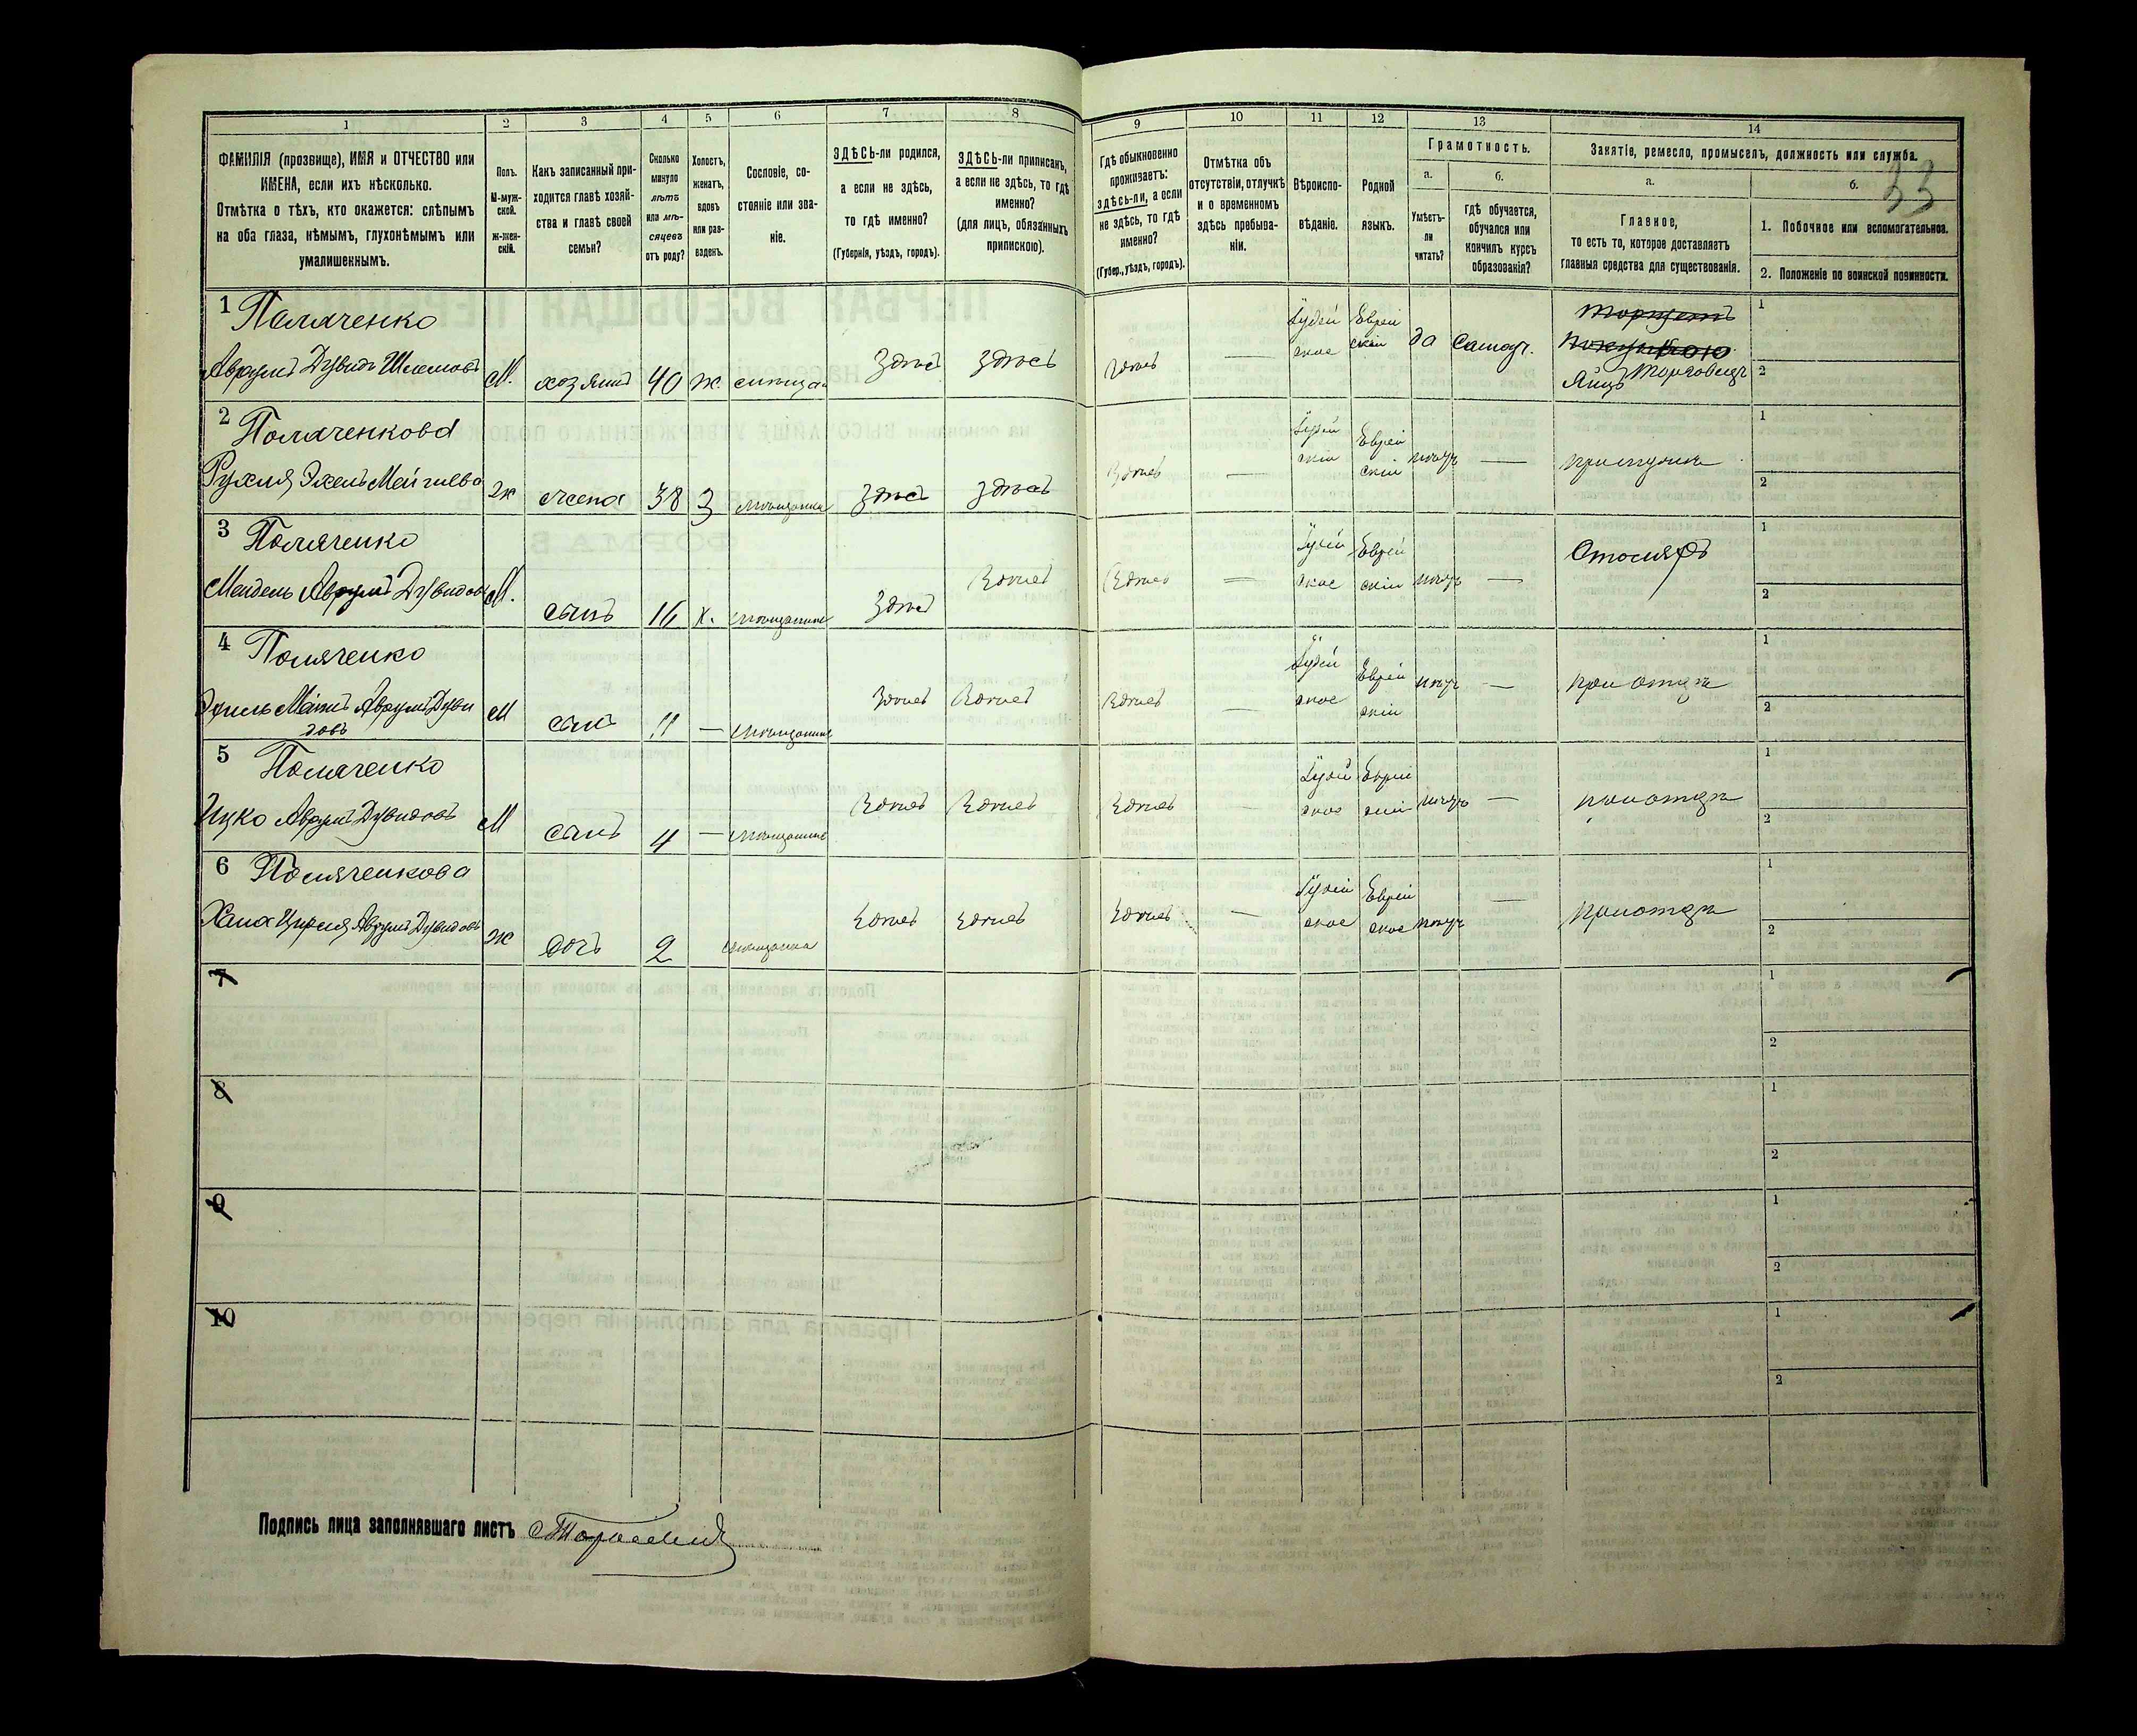 33
1 2 3 4 5 6 7 8 9 10 11 12 13 14
ФАМИЛІЯ (прозвище), ИМЯ и ОТЧЕСТВО или
ИМЕНА, если ихъ нѣсколько.
Отмѣтка о тѣхъ, кто окажется: слѣпымъ
на оба глаза, нѣмымъ, глухонѣмымъ или
умалишеннымъ.
Полъ.
М-муж-
ской.
ж-жен-
скій.
Какъ записанный при-
ходится главѣ хозяй-
ства и главѣ своей
семьи?
Сколько
минуло
лѣтъ
или мѣ-
сяцевъ
отъ роду?
Холостъ,
женатъ,
вдовъ
или раз-
веденъ.
Сословіе, со-
стояніе или зва-
ніе.
ЗДѢСЬ-ли родился,
а если не здѣсь,
то гдѣ именно?
(Губернія, уѣздъ, городъ).
ЗДѢСЬ-ли приписанъ,
а если не здѣсь, то гдѣ
именно?
(для лицъ, обязанныхъ
припискою).
Гдѣ обыкновенно
проживаетъ:
здѣсь-ли, а если
не здѣсь, то гдѣ
именно?
(Губер., уѣздъ, городъ).
Отмѣтка объ
отсутствіи, отлучкѣ
и о временномъ
здѣсь пребыва-
ніи.
Вѣроиспо-
вѣданіе.
Родной
языкъ.
Грамотность.
а.
Умѣетъ-
ли
читать?
б.
гдѣ обучается,
обучался или
кончилъ курсъ
образованія?
Занятіе, ремесло, промыселъ, должность или служба.
а.
Главное,
то есть то, которое доставляетъ
главныя средства для существованія.
б.
1. Побочное или вспомогательное.
2. Положеніе по воинской повинности.
1 Поляченко
Аврумъ Дувидъ М. хозяинъ 40 ж. здѣсь здѣсь здѣсь — Іудей
ское Еврей
скій да Самоуч.
Торговецъ
Яицъ
1
2
2 Поляченкова
Рухля ж жена 38 З мѣщанка здѣсь здѣсь здѣсь — Іудей
скій Еврей
скій —
1
2
3 Поляченко
Мендель Аврумъ Дувидовъ М. сынъ 16 х. мѣщанинъ здѣсь здѣсь здѣсь — Іудей
ское Еврей
скій — Столяръ
1
2
4 Поляченко
Аврумъ Дуви
довъ М сынъ 11 — мѣщанинъ здѣсь здѣсь здѣсь — Іудей
ское Еврей
скій — при отцѣ
1
2
5 Поляченко
Ицко Аврумъ Дувидовъ М сынъ 4 — мѣщанинъ здѣсь здѣсь здѣсь — Іудей
ское Еврей
скій — при отцѣ
1
2
6 Поляченкова
Хана Ципля Аврумъ Дувидовъ ж дочь 2 мѣщанка здѣсь здѣсь здѣсь — Іудей
ское Еврей
ское — при отцѣ
1
2
7
1
2
8
1
2
9
1
2
10
1
2
Подпись лица заполнявшаго листъ